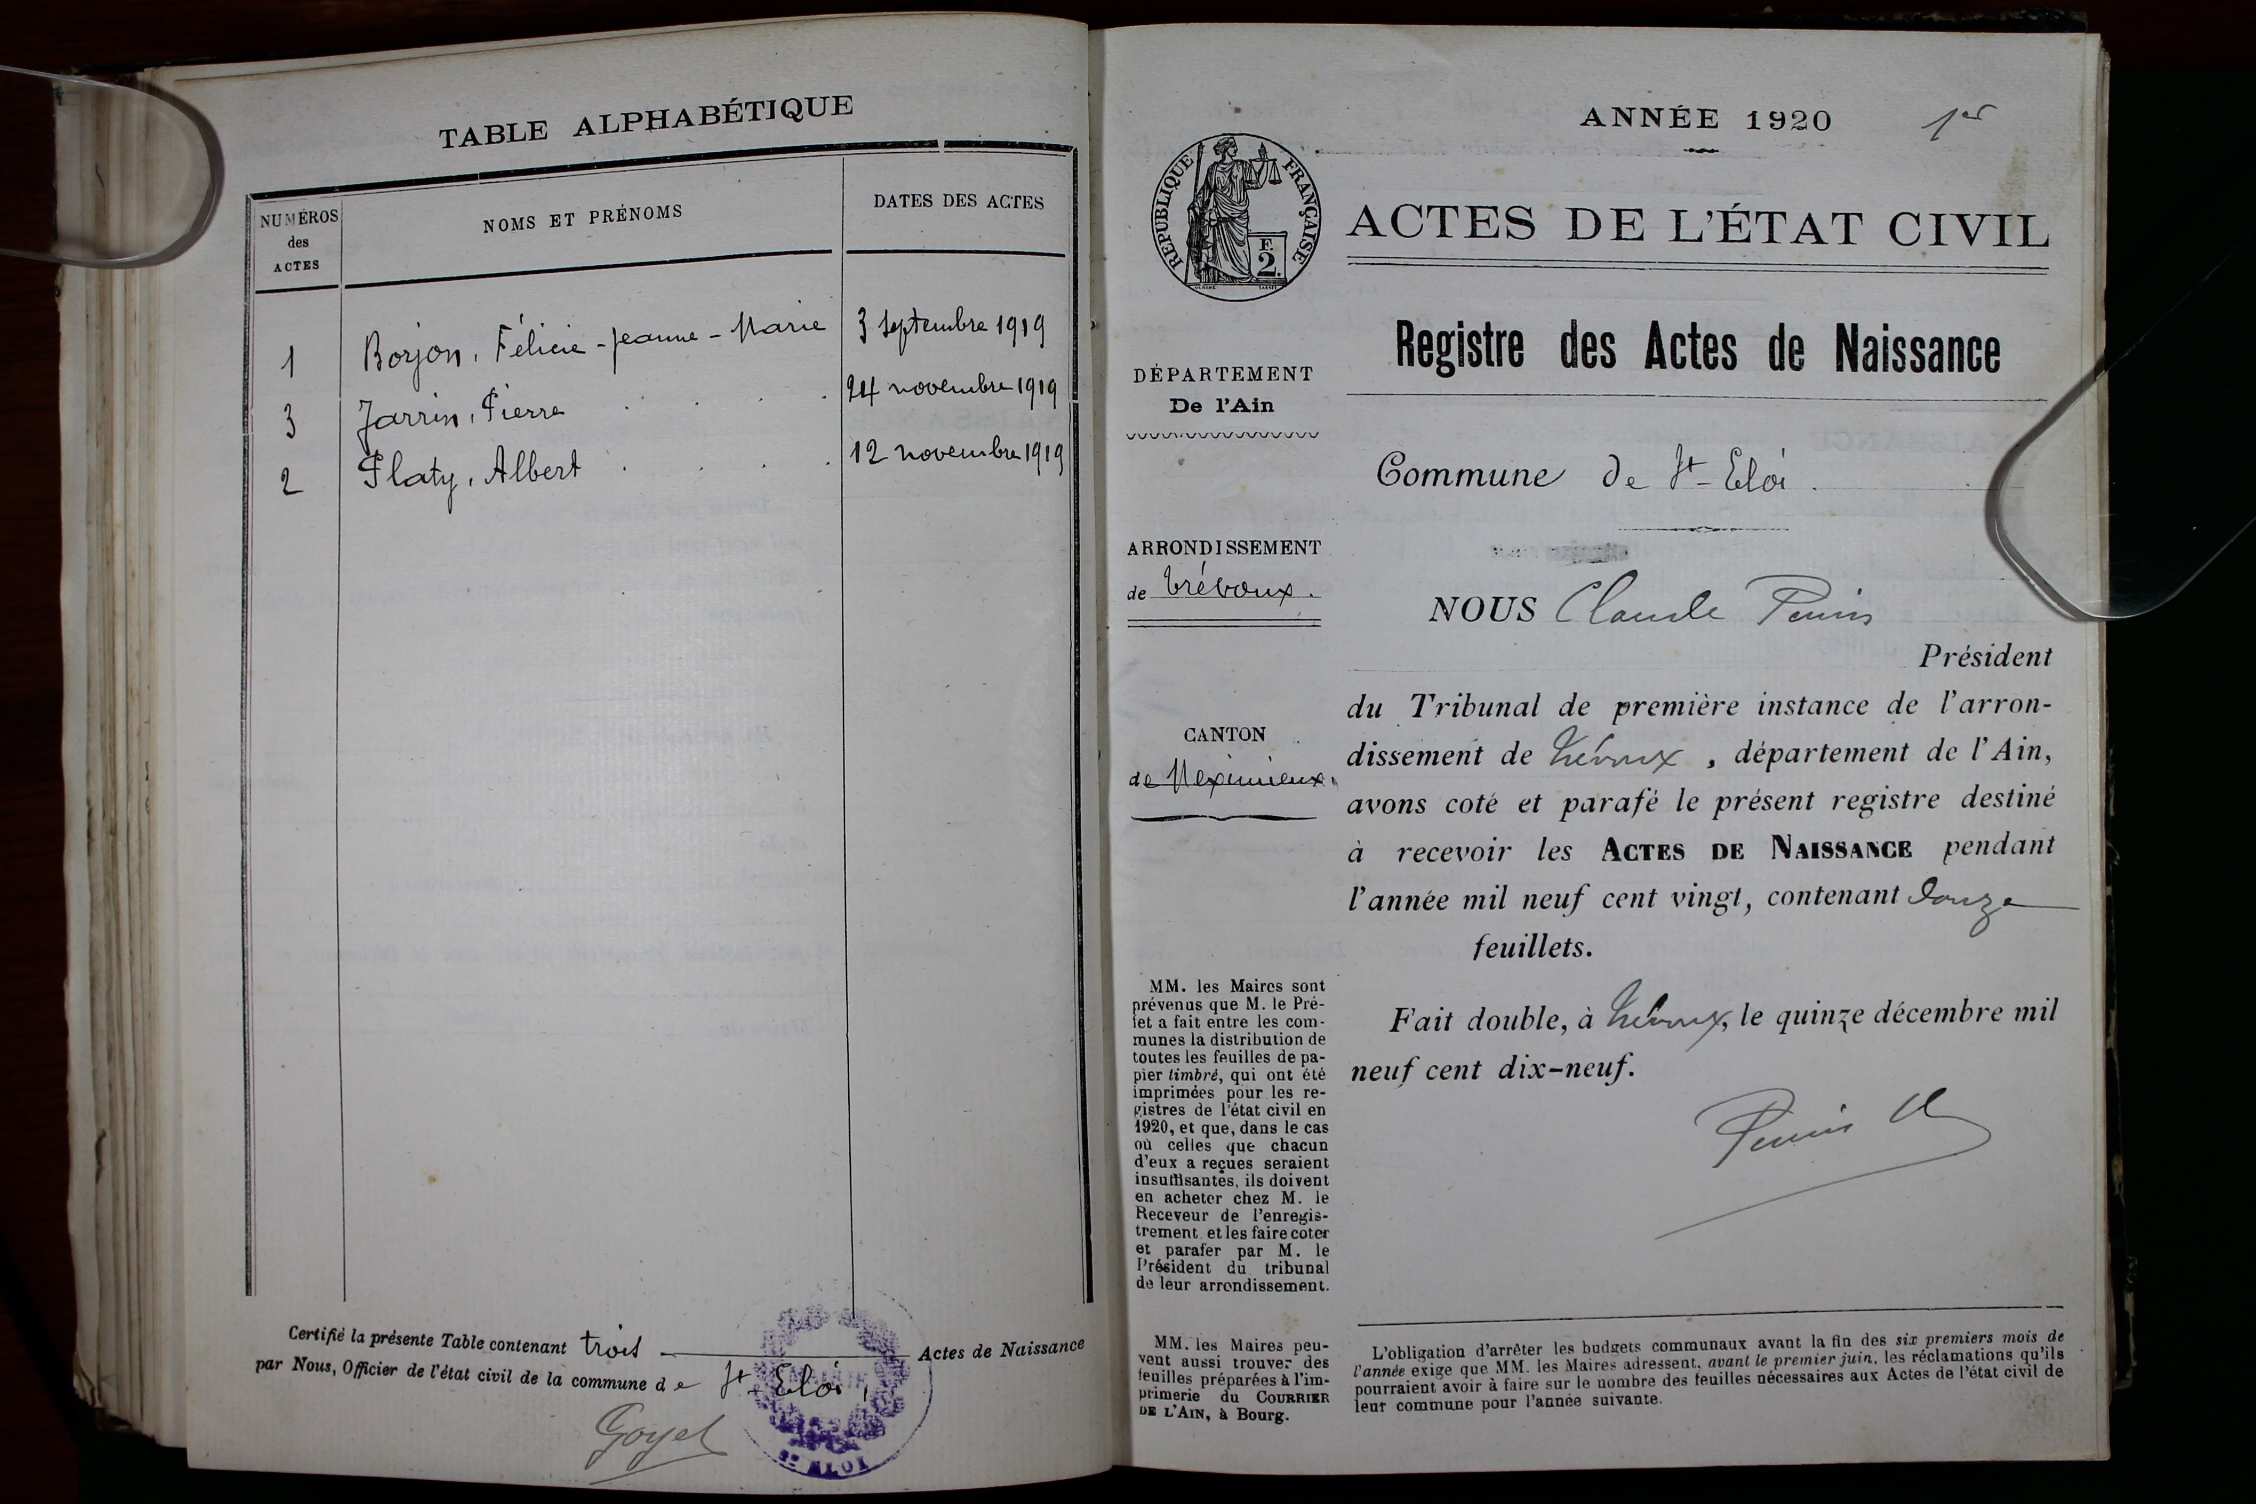 TABLE ALPHABÉTIQUE
NUMÉROS
des
ACTES
NOMS ET PRÉNOMS
DATES DES ACTES
1 Borjon, Félicie-Jeanne-Marie 3 septembre 1919
3 Jarrin, Pierre . . . . 24 novembre 1919
2 Platy, Albert . . . . 12 novembre 1919
Certifié la présente Table contenant trois Actes de Naissance
par Nous, Officier de l'état civil de la commune de St-Eloi,
Goyet
ST ELOI
ANNÉE 1920
1er
RÉPUBLIQUE FRANÇAISE
F.
2.
ACTES DE L'ÉTAT CIVIL
Registre des Actes de Naissance
DÉPARTEMENT
De l'Ain
Commune de St-Eloi.
ARRONDISSEMENT
de Trévoux.
CANTON
de Meximieux.
NOUS Claude
Président
du Tribunal de première instance de l'arron-
dissement de Trévoux, département de l'Ain,
avons coté et parafé le présent registre destiné
à recevoir les ACTES DE NAISSANCE pendant
l'année mil neuf cent vingt, contenant douze
feuillets.
Fait double, à Trévoux, le quinze décembre mil
neuf cent dix-neuf.
MM. les Maires sont
prévenus que M. le Pré-
fet a fait entre les com-
munes la distribution de
toutes les feuilles de pa-
pier timbré, qui ont été
imprimées pour les re-
gistres de l'état civil en
1920, et que, dans le cas
où celles que chacun
d'eux a reçues seraient
insuffisantes, ils doivent
en acheter chez M. le
Receveur de l'enregis-
trement et les faire coter
et parafer par M. le
Président du tribunal
de leur arrondissement.
MM. les Maires peu-
vent aussi trouver des
feuilles préparées à l'im-
primerie du COURRIER
DE L'AIN, à Bourg.
L'obligation d'arrêter les budgets communaux avant la fin des six premiers mois de
l'année exige que MM. les Maires adressent, avant le premier juin, les réclamations qu'ils
pourraient avoir à faire sur le nombre des feuilles nécessaires aux Actes de l'état civil de
leur commune pour l'année suivante.